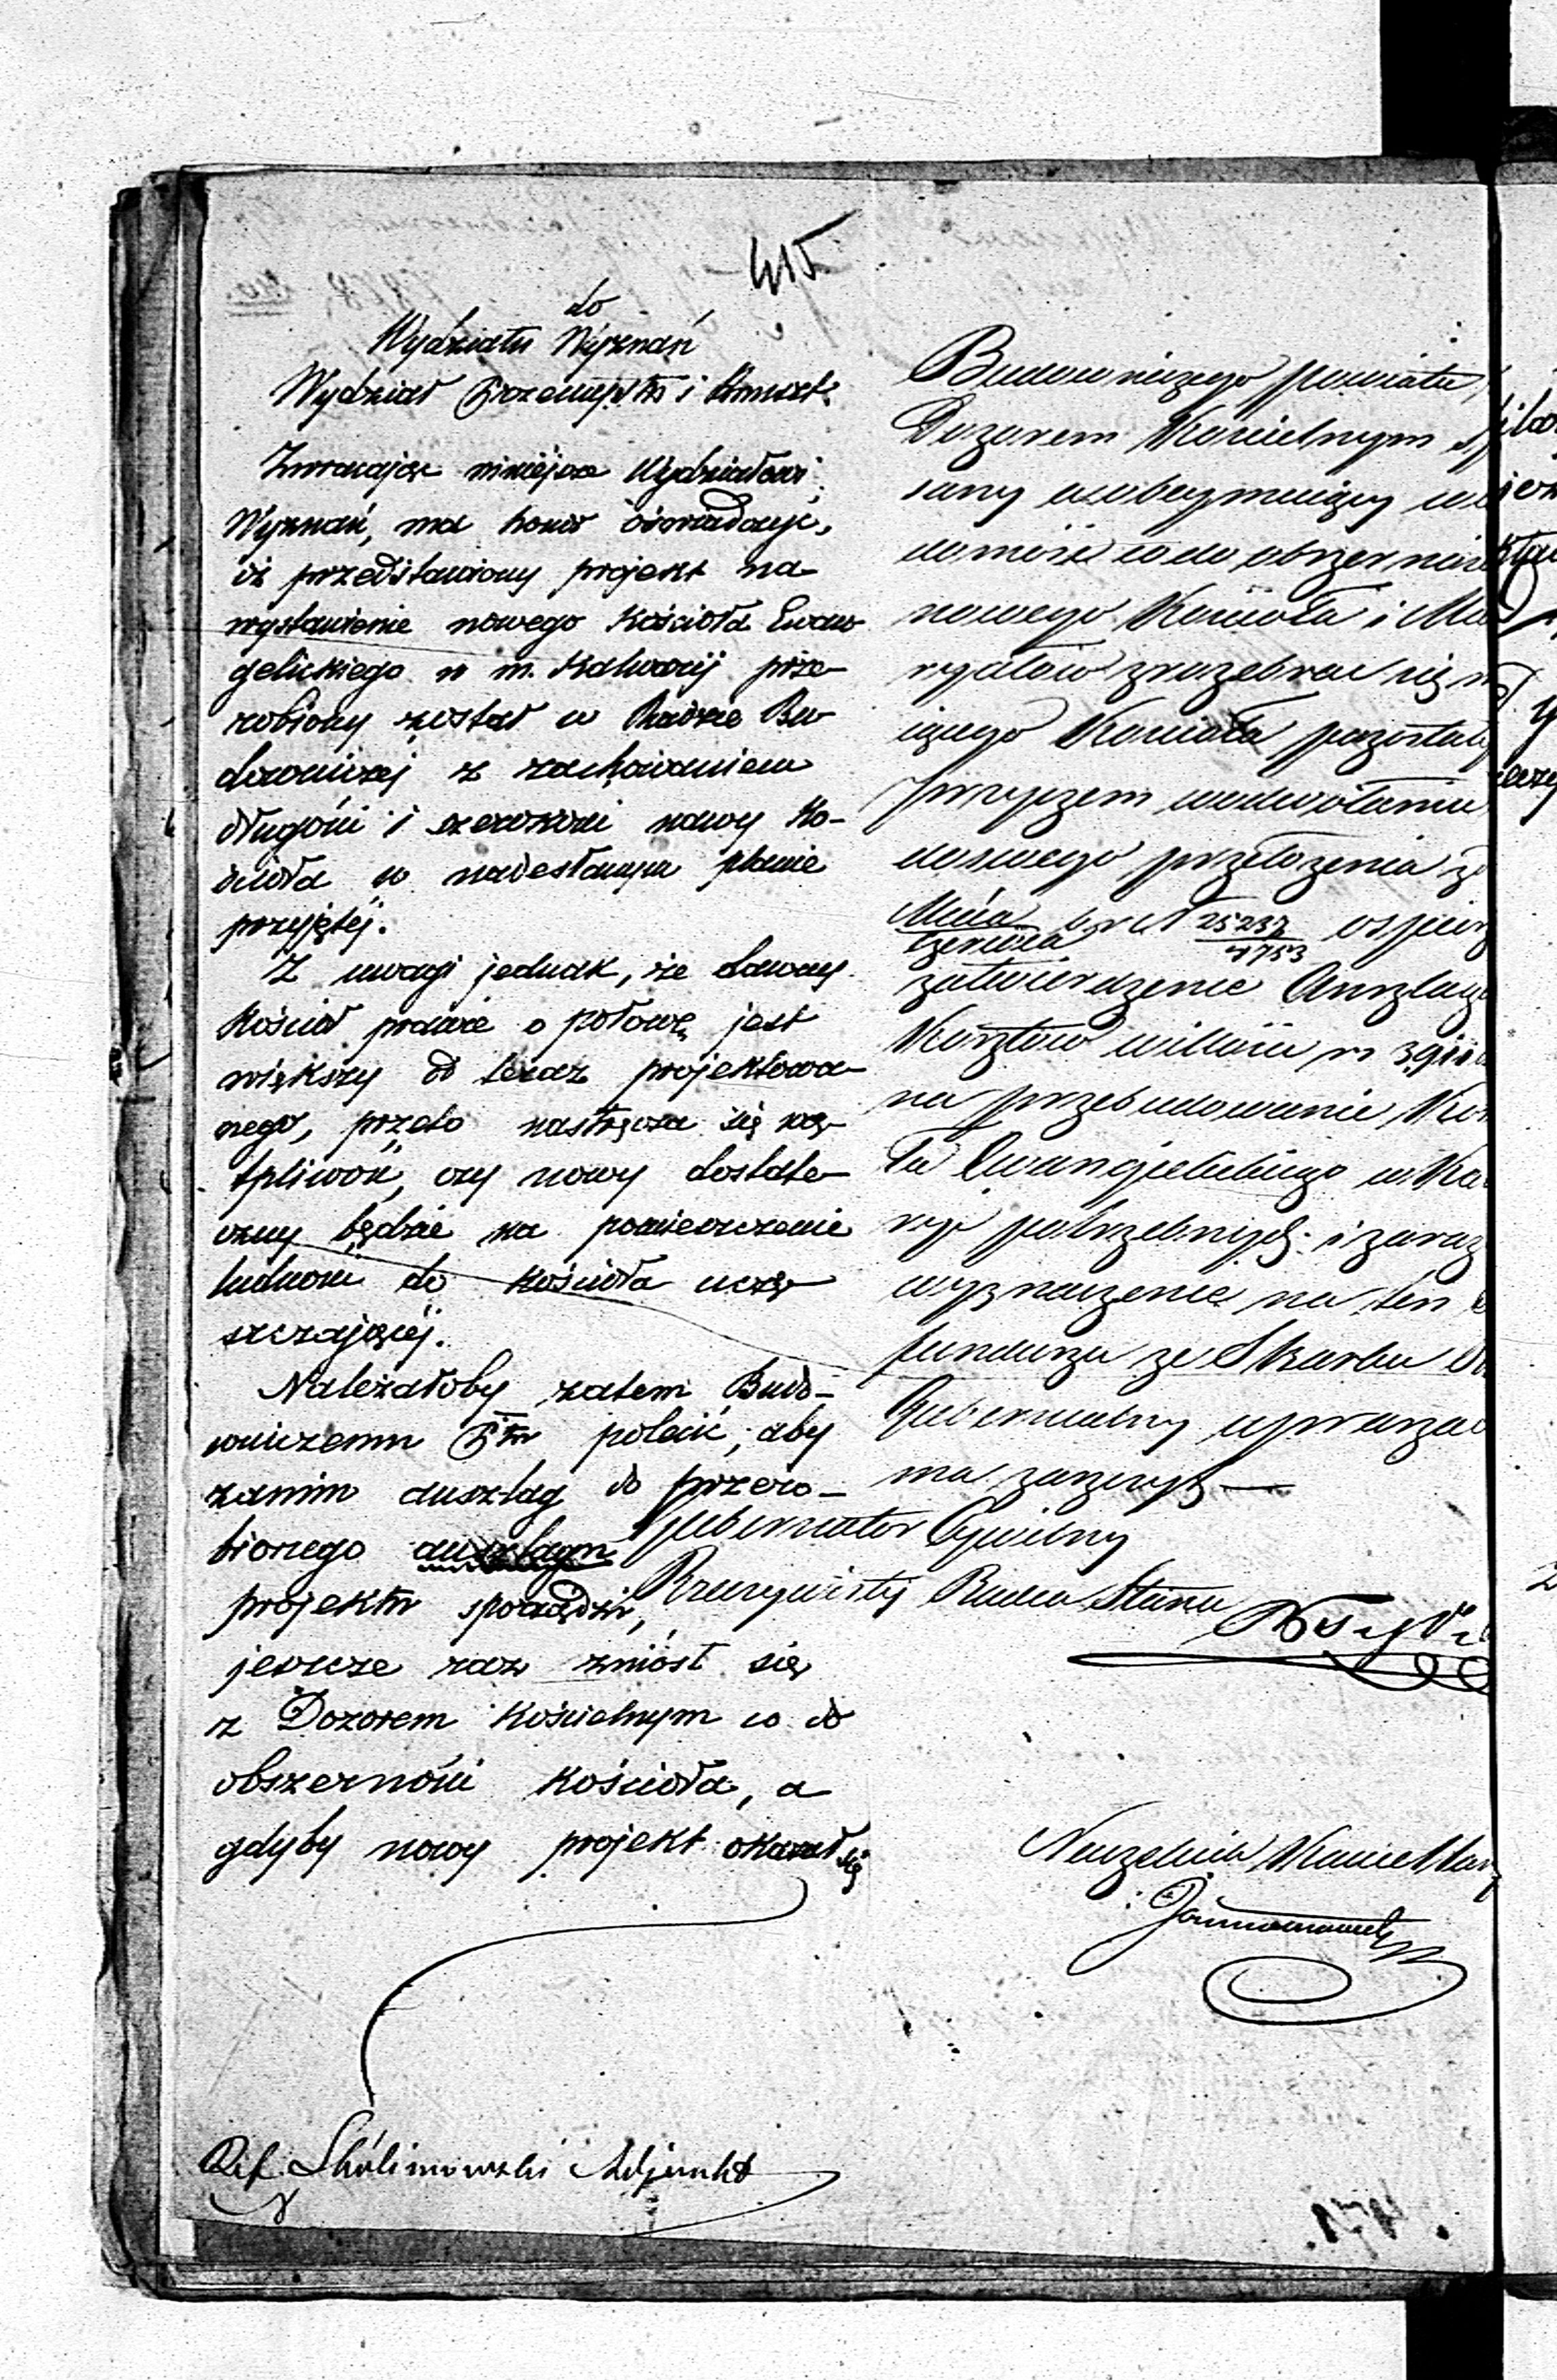 415
do
Wydziału Wyznań
Wydział Przemysłu i Kunszt:
Zwracając niniejsze Wydziałowi
Wyznań, ma honor oświadczyć,
iż przedstawiony projekt na
wystawienie nowego Kościoła Ewan-
gelickiego w m. Kalwaryi prze-
robiony został w Radzie Bu-
downiczej z zachowaniem
długości i szerokości nawy Ko-
ścioła w nadesłanym planie
przyjętéj.
Z uwagi jednak, że dawny
Kościoł prawie o połowę jest
większy od teraz projektowa-
nego, przeto nastręcza się wą-
tpliwość, czy nowy dostate-
czny będzie na pomieszczenie
ludności do Kościoła uczę-
szczającéj.
Należałoby zatem Budo-
wniczemu Ptu polecić, aby
zanim anszlag do przero-
bionego anszlagu
projektu sporządzi,
jeszcze raz zniósł się
z Dozorem Kościelnym co do
obszerności Kościoła, a
gdyby nowy projekt okazał się
Ref. Skólimowski Adjunkt
Budowniczego powiatu
Dozorem Kościelnym
sany a obeymuiący
domość co do obszerności
nowego Kościoła i
ryałów z rozebrać się
iącego Kościoła pozostały
przyczem w odwołaniu
do swego przełożenia z
Maia
Czerwca br N 25237
1753
zatwierdzenie Anszlagu
Kosztów w ilości rs
na przebudowanie
ła Ewangelickiego w
ryi potrzebnych: i zaraz
wyznaczenie na ten
funduszu ze Skarbu
Gubernialny upraszać
ma zaszczyt
Gubernator Cywilny
Rzeczywisty Radca Stanu
Naczelnik Kancellary